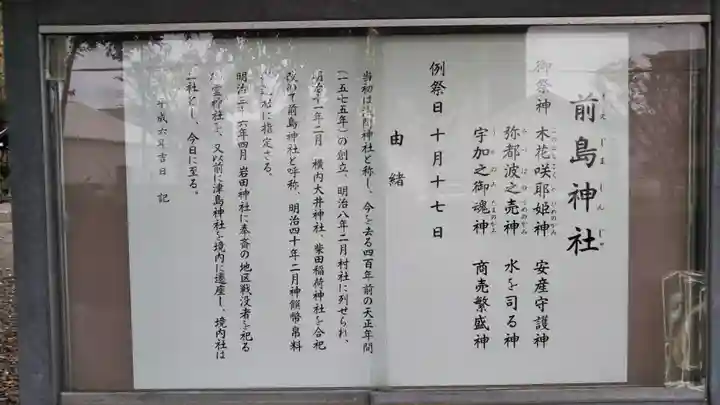 前島神社
まえじまじんじゃ
御祭神 木花咲耶姫神 安産守護神
弥都波之売神 水を司る神
宇加之御魂神 商売繁盛神
例祭日 十月十七日
由緒
当初は浅間神社と称し、今を去る四百年前の天正年間
(一五七五年)の創立、明治八年二月村社に列せられ、
明治十一年二月 横内大井神社、柴田稲荷神社を合祀
改めて前島神社と呼称、明治四十年二月神饌幣帛料
社に指定さる。
明治三十六年四月 岩田神社に奉斎の地区戦没者を祀る
霊神社を、又以前に津島神社を境内に遷座し、境内社は
二社とし、今日に至る。
平成六年吉日 記